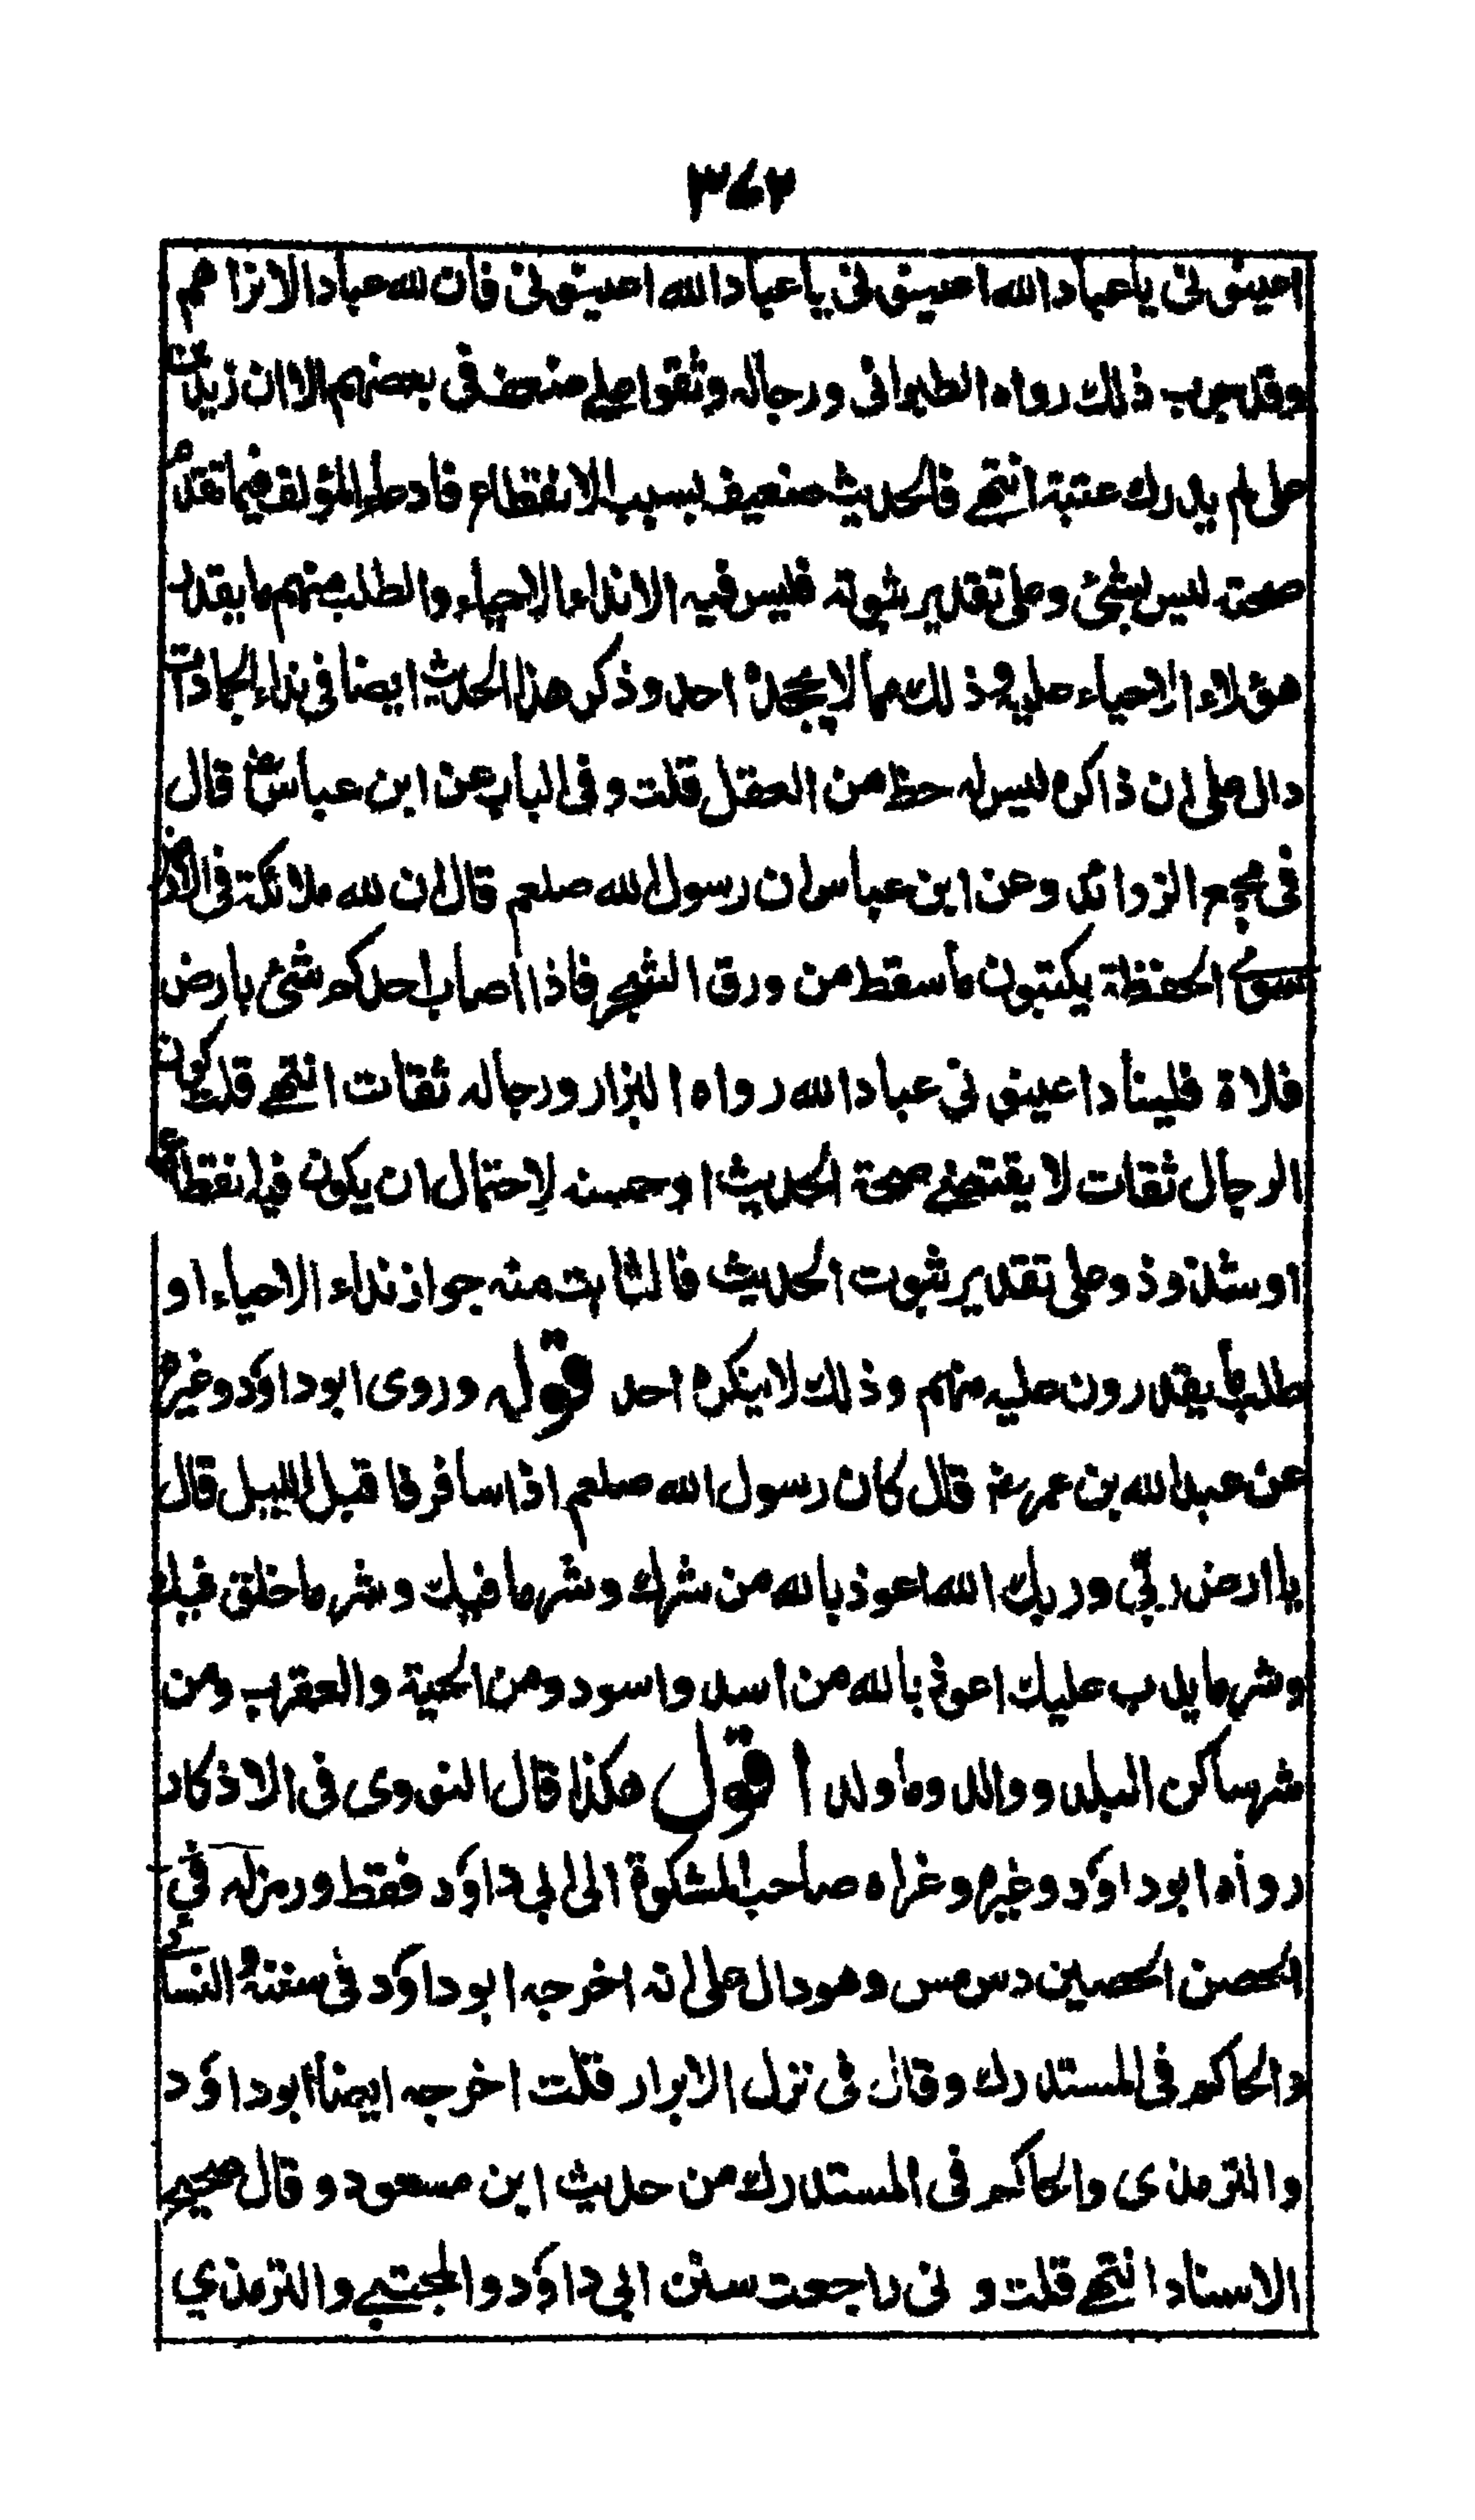 ٣٧٢
اعينونى ياعبادالله اعينونى ياعبادالله اعينونى فان لله عبادا لانراهم
وقد جرب ذلك رواه الطبرانى ورجاله وثقوا على ضعف فى بعضهم الا ان زيد بن
على لم يدرك عتبة انتهى فالحديث ضعيف بسبب الانقطاع فادعاء المؤلف فيما تقدم
صحته ليس بشئ وعلى تقدير ثبوته فليس فيه الا نداء الاحياء والطلب منهم ما يقدر
هؤلاء الاحياء عليه وذلك مما لا يجحده احد وذكر هذا الحديث ايضا فى نداء الجمادات
دال على ان ذاكره ليس له حظ من العقل قلت وفى الباب عن ابن عباس رض قال
فى مجمع الزوائد وعن ابن عباس ان رسول الله صلعم قال ان لله ملائكة فى الارض
سوى الحفظة يكتبون ما سقط من ورق الشجر فاذا اصاب احدكم شئ بارض
فلاة فليناد اعينونى عبادالله رواه البزار ورجاله ثقات انتهى قلت كون
الرجال ثقات لا يقتضى صحة الحديث او حسنه لاحتمال ان يكون فيه انقطاع
او شذوذ وعلى تقدير ثبوت الحديث فالثابت منه جواز نداء الاحياء او
طلب ما يقدرون عليه منهم وذلك لا ينكره احد قوله وروى ابو داؤد وغيره
عن عبدالله بن عمر رض قال كان رسول الله صلعم اذا سافر فاقبل الليل قال
يا ارض ربى وربك الله اعوذ بالله من شرك وشر ما فيك وشر ما خلق فيك
وشر ما يدب عليك اعوذ بالله من اسد واسود ومن الحية والعقرب ومن
شر ساكن البلد ووالد وما ولد اقول هكذا قال النووى فى الاذكار
رواه ابو داؤد وغيره وعزاه صاحب المشكوة الى ابى داؤد فقط ورمز له فى
الحصن الحصين دس مس وهو دال على انه اخرجه ابو داؤد فى سننه والنسائى
والحاكم فى المستدرك وقال فى نزل الابرار قلت اخرجه ايضا ابو داؤد
والترمذى والحاكم فى المستدرك من حديث ابن مسعود وقال صحيح
الاسناد انتهى قلت و نى راجعت سنن ابى داؤد والمجتبى والترمذي